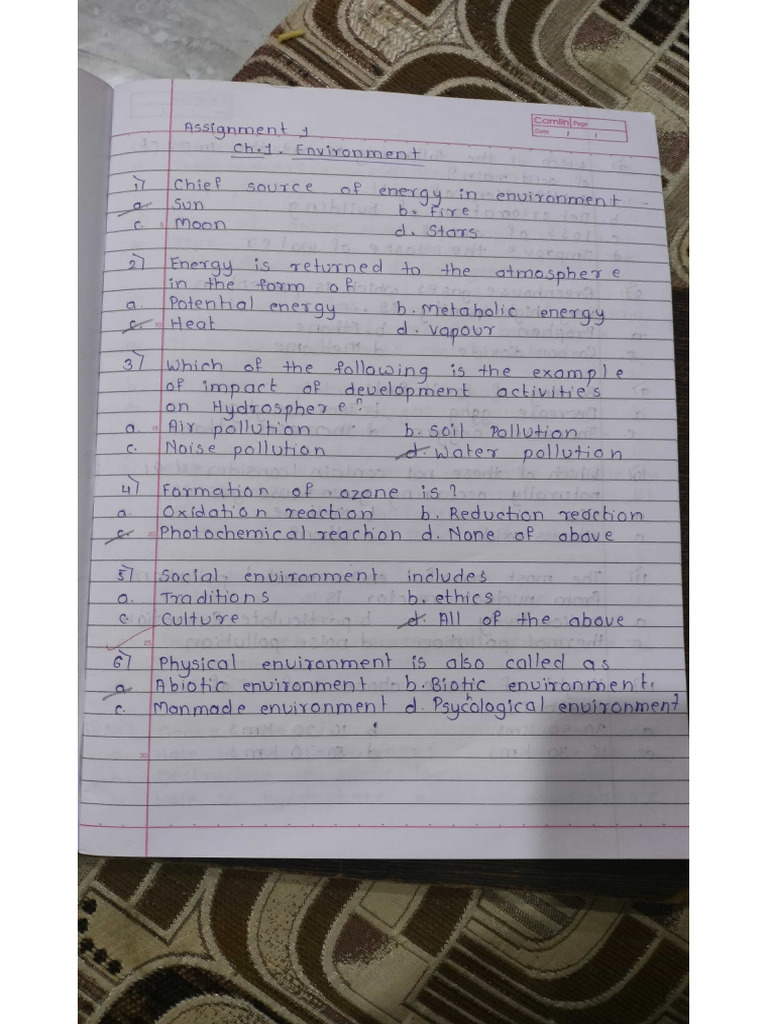 Camlin Page
Date / /
Assignment 1
Ch.1. Environment
1) Chief source of energy in environment -
a. Sun b. Fire
c. Moon d. Stars
2) Energy is returned to the atmosphere
in the form of
a. Potential energy. b. Metabolic energy
c. Heat d. Vapour
3) Which of the following is the example
of impact of development activities
on Hydrosphere?
a. Air pollution b. Soil Pollution
c. Noise pollution d. Water pollution
4) Formation of ozone is?
a. Oxidation reaction b. Reduction reaction
c. Photochemical reaction d. None of above
5) Social environment includes
a. Traditions b. ethics
c. Culture d. All of the above
6) Physical environment is also called as
a. Abiotic environment b. Biotic environment.
c. Manmade environment d. Psychological environment